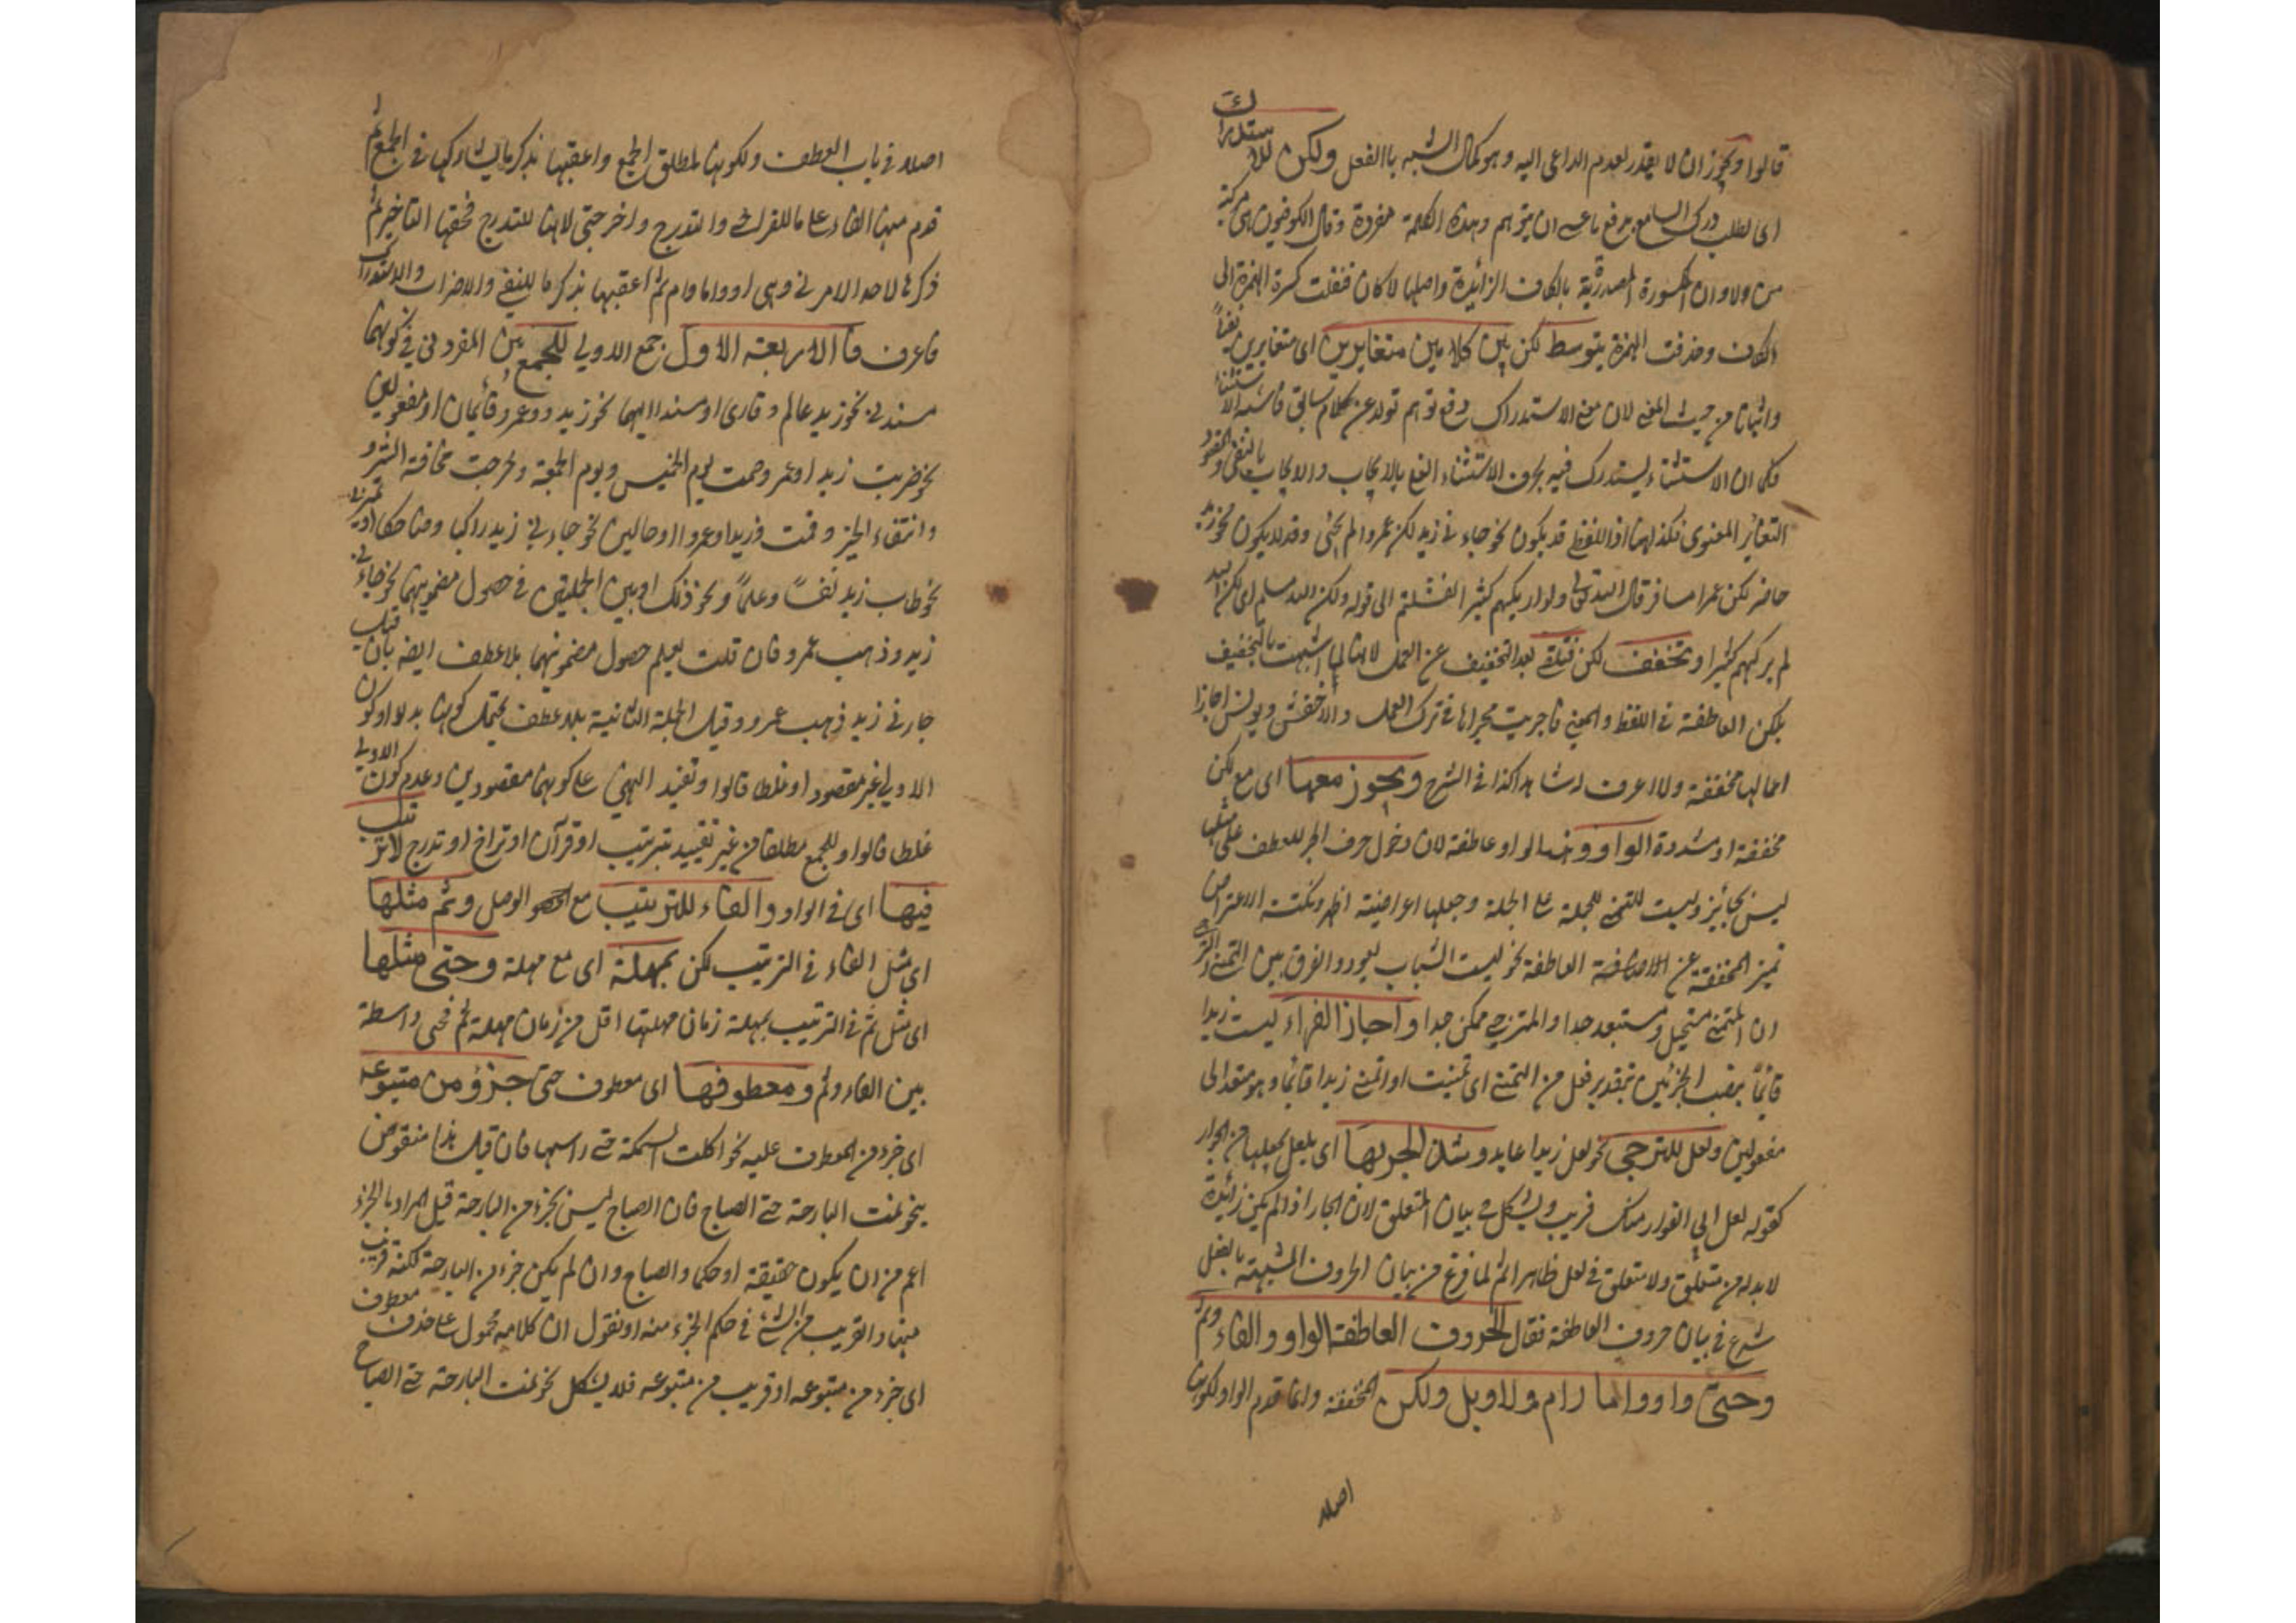 قالوا ويجوز ان لا يقدر لعدم الداعى اليه وهو كمال الشبه باالفعل ولكن للاستدراك
اى لطلب درك السامع برفع ما عسى ان يتوهم وهذه الكلمة مفردة وقال الكوفيون هى مركبة
من لا وان المكسورة المصدرية بالكاف الزائدة واصلها لا كان فنقلت كسرة الهمزة الى
الكاف وحذفت الهمزة يتوسط لكن بين كلامين متغايرين اى متغايرين نفيا
واثباتا من حيث المعنى لان معنى الاستدراك دفع توهم تولد عن كلام سابق فاشبه الاستثناء
فكما ان الاستثناء يستدرك فيه بحرف الاستثناء النفى بالايجاب والايجاب بالنفى والمقصود
التغاير المعنوى فكذلك اذ اللفظى قد يكون نحو جاءنى زيد لكن عمروا لم يجئ وقد لا يكون نحو زيد
حاضر لكن عمرا مسافر قال الله تعالى ولو اريكهم كثيرا لفشلتم الى قوله ولكن الله سلم اى لكن الله
لم يركهم كثيرا وتخفف لكن فتلغى بعد التخفيف عن العمل لانها لما اشبهت بالتخفيف
بلكن العاطفة فى اللفظ والمعنى فاجريت مجراها فى ترك العمل والاخفش ويونس اجازا
اعمالها مخففة ولا اعرف له شاهدا كذا فى الشرح ويجوز معها اى مع لكن
مخففة او مشددة الواو وهذا الواو عاطفة لان دخول حرف الجر للعطف على مثلها
ليس بجائز وليست للتمنى للجملة على الجملة وجعلها اعراضية اظهر ونكتة الاعتراض
تميز المخففة عن العاطفة نحو ليت الشباب يعود والفرق بين التمنى والترجى
ان المتمنى مستحيل ومستبعد جدا والمترجى ممكن جدا واجاز الفراء ليت زيدا
قائما بنصب الجزئين بتقدير فعل من التمنى اى تمنيت او اتمنى زيدا قائما وهو متعد الى
مفعولين ولعل للترجى نحو لعل زيدا عابد وشذ الجر بها اى بلعل بجعلها من الجوار
كقوله لعل ابى المغوار منك قريب ويشكل فى بيان المتعلق لان الجار اذا لم يكن زائدة
لا بد له من متعلق ولا متعلق فى لعل ظاهرا ثم لما فرغ من بيان الحروف المشبهة بالفعل
شرع فى بيان حروف العاطفة فقال الحروف العاطفة الواو والفاء وثم
وحتى واو واما وام ولا وبل ولكن المخففة وانما قدم الواو لكونها
اصلا
اصلا فى باب العطف ولكونها لمطلق الجمع واعقبها بذكر ما يشاركها فى الجمع ثم
قدم منها الفاء على ما للتراخى والتدرج واخر حتى لانها للتدرج فحقها التاخير ثم
ذكر ما لاحد الامرين وهى او واما وام ثم اعقبها بذكر ما للنفى والاضراب والاستدراك
فاعرف فالاربعة الاول جمع الاولى للجمع بين المفردين فى كونهما
مسندين نحو زيد عالم وقارى او مسندا اليهما نحو زيد وعمرو قائمان او مفعولين
نحو ضربت زيدا وعمرو صمت يوم الخميس ويوم الجمعة وخرجت مخافة الشرو
وانتفاء الخير وقمت وزيدا وعمروا او حالين نحو جاءنى زيد راكبا وضاحكا او تميزين
نحو طاب زيد نفسا وعلما ونحو ذلك او بين الجملتين فى حصول مضمونهما نحو جاءنى
زيد وذهب عمرو فان قلت يعلم حصول مضمونهما بلا عطف ايضه بان قيل
جاءنى زيد ذهب عمرو وقيل الجملة الثانية بلا عطف يحتمل كونها بدلا وكون
الاولى غير مقصود او غلطا قالوا وتفيد النص على كونهما مقصودين وعدم كون الاولى
غلطا قالوا وللجمع مطلقا من غير تقييد بترتيب او قرآن او تراخ او تدرج لا ترتيب
فيها اى فى الواو والفاء للترتيب مع الوصل وثم مثلها
اى مثل الفاء فى الترتيب لكن بمهلة اى مع مهلة وحتى مثلها
اى مثل ثم فى الترتيب بمهلة زمان مهلتها اقل من زمان مهلة ثم فحتى واسطة
بين الفاء وثم ومعطوفها اى معطوف حتى جزؤ من متبوعه
اى جزء من المعطوف عليه نحو اكلت السمكة حتى راسها فان قيل هذا منقوض
بنحو نمت البارحة حتى الصباح فان الصباح ليس بجزء من البارحة قيل المراد بالجزء
اعم من ان يكون حقيقة او حكما والصباح وان لم يكن جزء من البارحة لكنه قريب
منها والقريب من الشئ فى حكم الجزء منه او نقول ان كلامه محمول على حذف معطوف
اى جزء من متبوعه او قريب من متبوعه فلا يشكل نحو نمت البارحة حتى الصباح